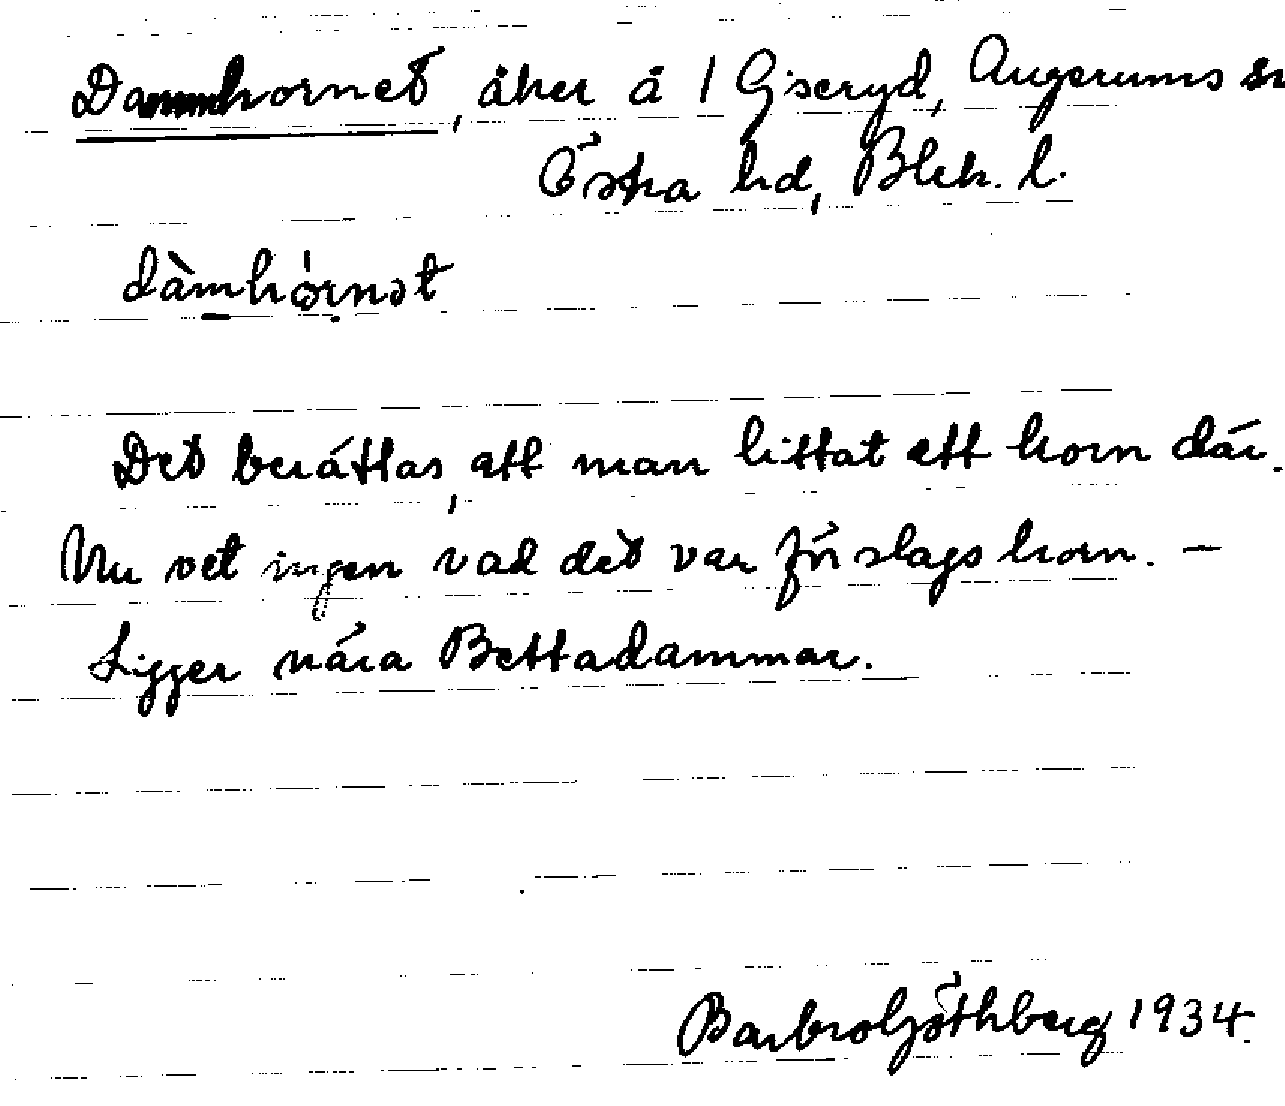 Dammhornet, åker å 1 Giseryd, Augerums sn
Östra hd, Blek. l.
dàmhò̤rnət
Det berättas, att man hittat ett horn där.
Nu vet ingen vad det var för slags horn. —
Ligger nära Bettadammar.
Barbro Göthberg 1934.